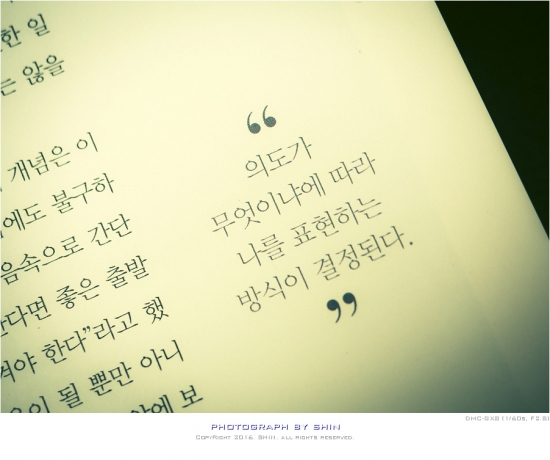 한 일
는 않을
개념은 이
에도 불구하
음속으로 간단
한다면 좋은 출발
겨야 한다”라고 했
이 될 뿐만 아니
에 보
“
의도가
무엇이냐에 따라
나를 표현하는
방식이 결정된다.
”
DMC-GX8 (1/60s, F2.8)
PHOTOGRAPH BY SHIN
CopyRight 2016. SHIN. all rights reserved.